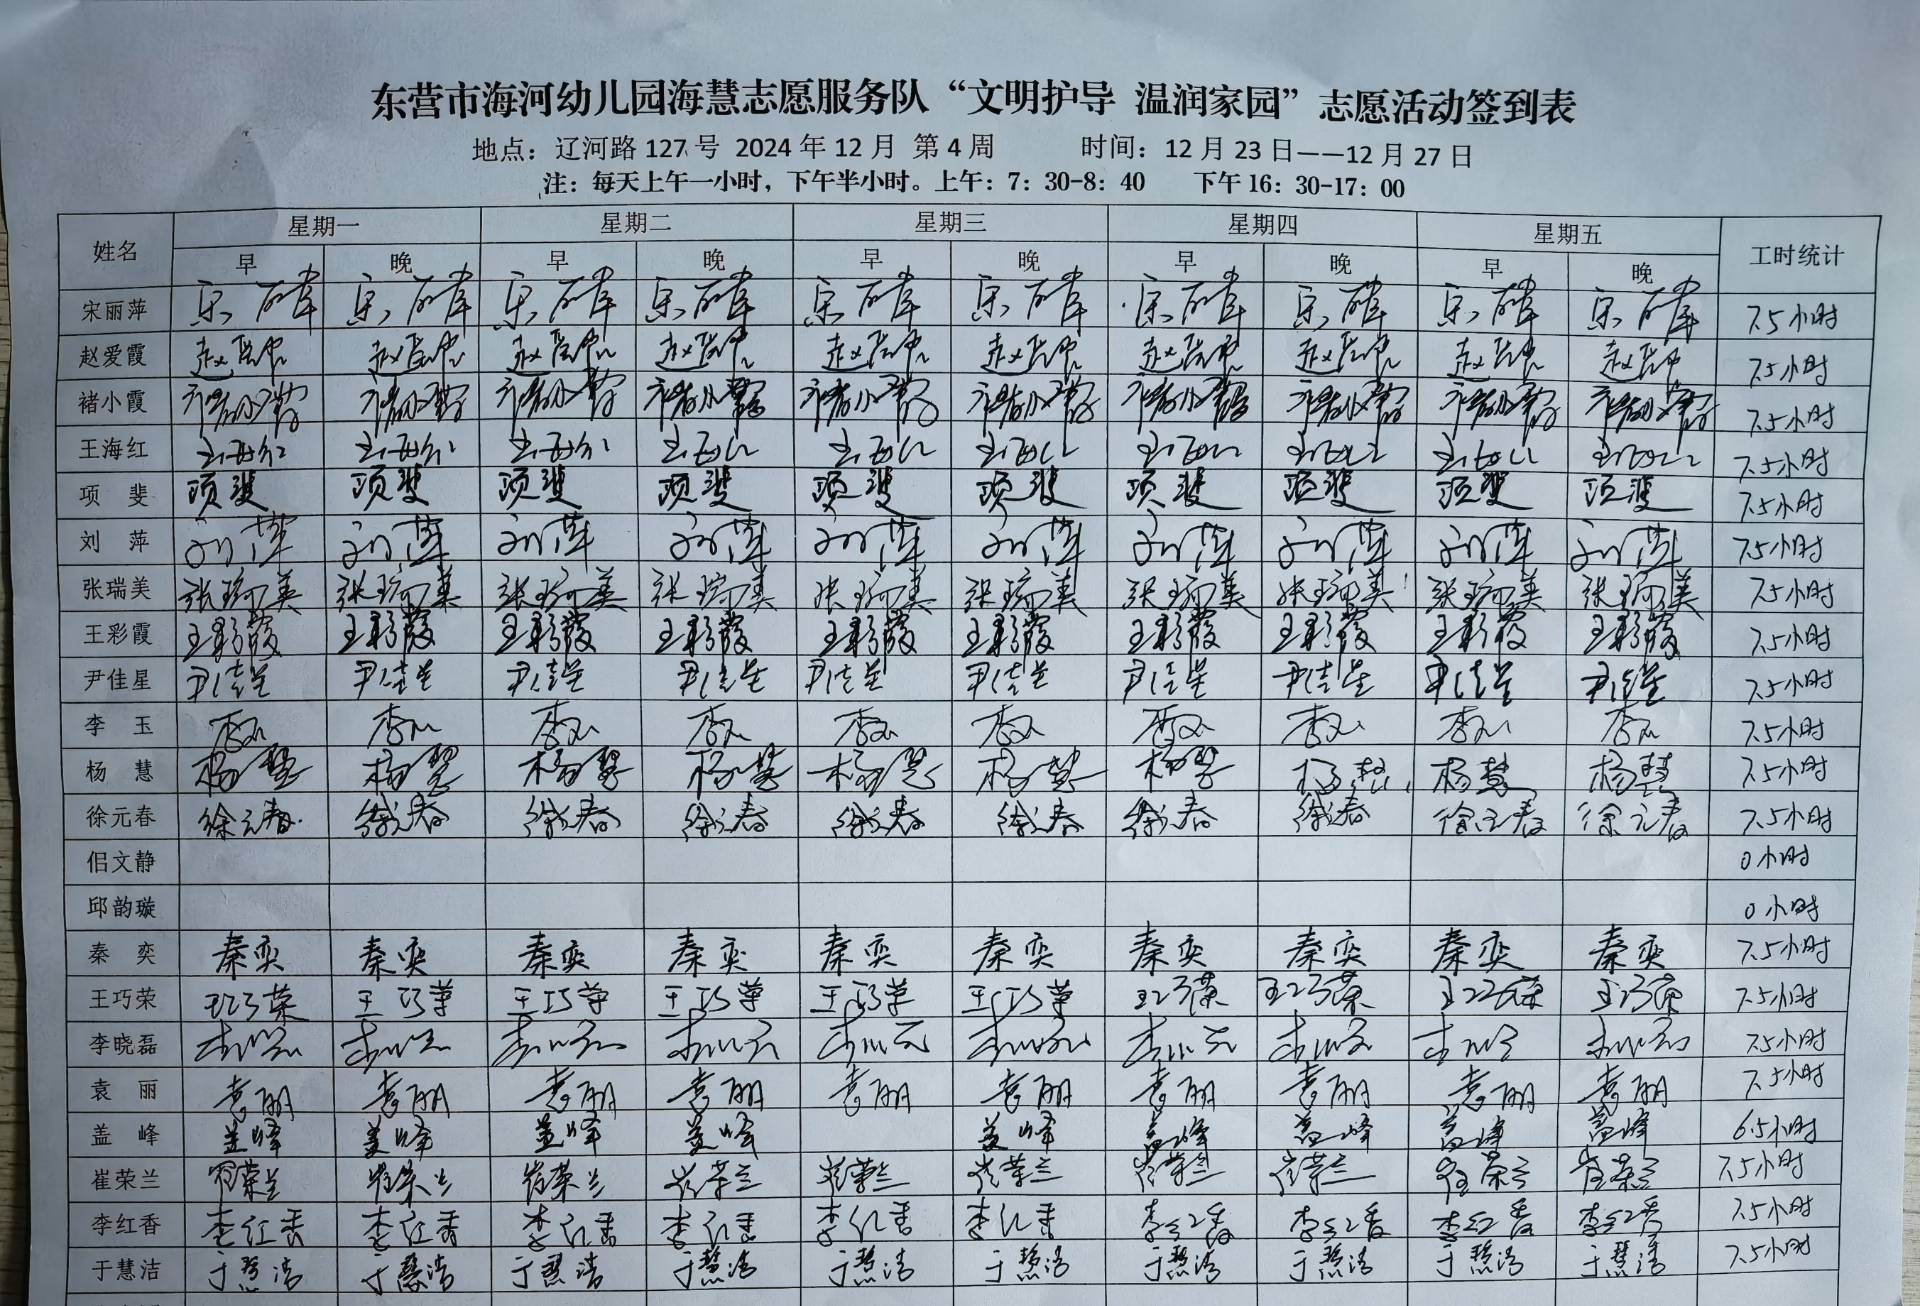 东营市海河幼儿园海慧志愿服务队“文明护导 温润家园”志愿活动签到表
地点：辽河路 127 号 2024 年 12 月 第 4 周 时间：12 月 23 日——12 月 27 日
注：每天上午一小时，下午半小时。上午：7：30-8：40 下午 16：30-17：00
姓名 星期一 星期二 星期三 星期四 星期五 工时统计
早 晚 早 晚 早 晚 早 晚 早 晚
宋丽萍 7.5小时
赵爱霞 7.5小时
褚小霞 褚小霞 褚小霞 褚小霞 褚小霞 褚小霞 褚小霞 褚小霞 褚小霞 褚小霞 褚小霞 7.5小时
王海红 7.5小时
项 斐 项斐 项斐 项斐 项斐 项斐 项斐 项斐 项斐 项斐 项斐 7.5小时
刘 萍 刘萍 刘萍 刘萍 刘萍 刘萍 刘萍 刘萍 刘萍 刘萍 刘萍 7.5小时
张瑞美 张瑞美 张瑞美 张瑞美 张瑞美 张瑞美 张瑞美 张瑞美 张瑞美 张瑞美 张瑞美 7.5小时
王彩霞 王彩霞 王彩霞 王彩霞 王彩霞 王彩霞 王彩霞 王彩霞 王彩霞 王彩霞 王彩霞 7.5小时
尹佳星 尹佳星 尹佳星 尹佳星 尹佳星 尹佳星 尹佳星 尹佳星 尹佳星 尹佳星 尹佳星 7.5小时
李 玉 李玉 李玉 李玉 李玉 李玉 李玉 李玉 李玉 李玉 李玉 7.5小时
杨 慧 杨慧 杨慧 杨慧 杨慧 杨慧 杨慧 杨慧 杨慧 杨慧 杨慧 7.5小时
徐元春 徐元春 徐元春 徐元春 徐元春 徐元春 徐元春 徐元春 徐元春 徐元春 徐元春 7.5小时
佀文静 0小时
邱韵璇 0小时
秦 奕 秦奕 秦奕 秦奕 秦奕 秦奕 秦奕 秦奕 秦奕 秦奕 秦奕 7.5小时
王巧荣 王巧荣 王巧荣 王巧荣 王巧荣 王巧荣 王巧荣 王巧荣 王巧荣 王巧荣 王巧荣 7.5小时
李晓磊 7.5小时
袁 丽 袁丽 袁丽 袁丽 袁丽 袁丽 袁丽 袁丽 袁丽 袁丽 袁丽 7.5小时
盖 峰 盖峰 盖峰 盖峰 盖峰 盖峰 盖峰 盖峰 盖峰 盖峰 6.5小时
崔荣兰 崔荣兰 崔荣兰 崔荣兰 崔荣兰 崔荣兰 崔荣兰 崔荣兰 崔荣兰 崔荣兰 崔荣兰 7.5小时
李红香 李红香 李红香 李红香 李红香 李红香 李红香 李红香 李红香 李红香 李红香 7.5小时
于慧洁 于慧洁 于慧洁 于慧洁 于慧洁 于慧洁 于慧洁 于慧洁 于慧洁 于慧洁 于慧洁 7.5小时